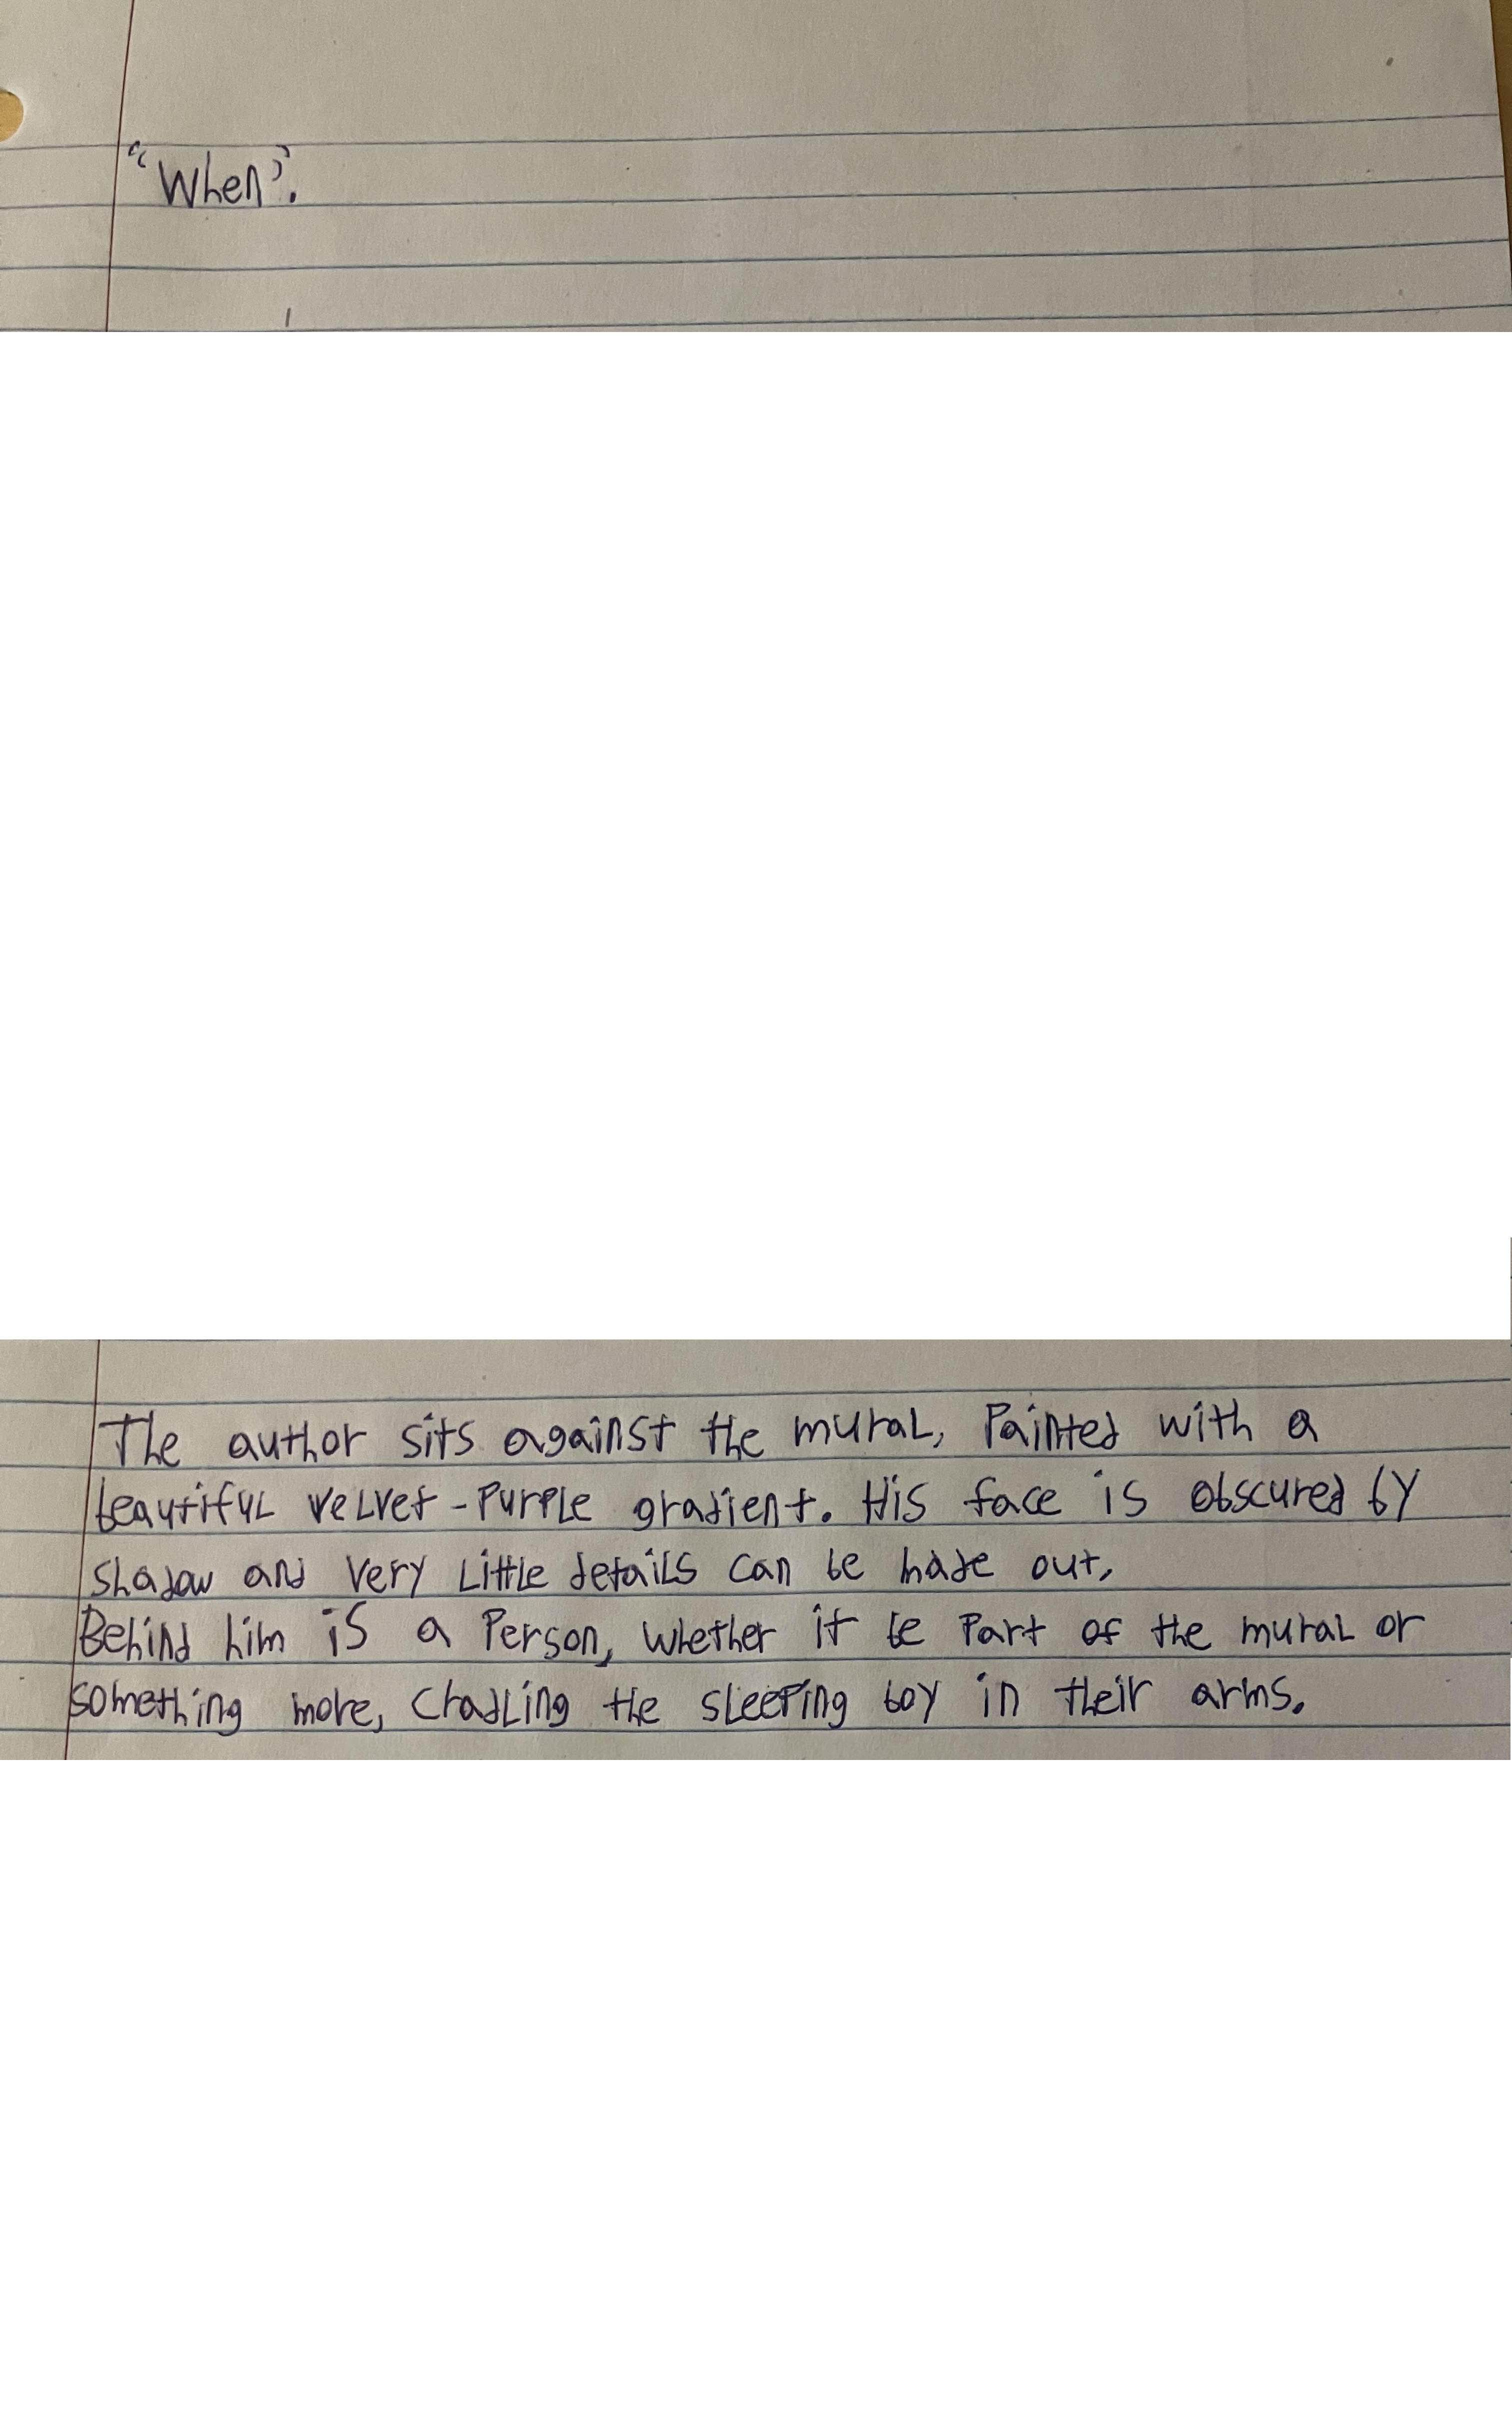 "When".
The author sits against the mural, Painted with a
beautiful velvet-purple gradient. His face is obscured by
shadow and very little details can be made out.
Behind him is a Person, whether it be Part of the mural or
something more, cradling the sleeping boy in their arms.